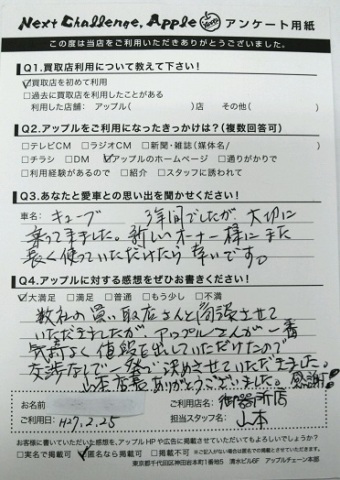 Next Challenge. Apple アンケート用紙
この度は当店をご利用いただきありがとうございました。
Q1.買取店利用について教えて下さい!
☑買取店を初めて利用
□過去に買取店を利用したことがある
利用した店舗: アップル( )店 その他( )
Q2.アップルをご利用になったきっかけは?(複数回答可)
□テレビCM □ラジオCM □新聞・雑誌(媒体名/ )
□チラシ □DM ☑アップルのホームページ □通りがかりで
□利用経験があるので □紹介 □スタッフに誘われて
Q3.あなたと愛車との思い出を聞かせください!
車名: キューブ 3年間でしたが 大切に
乗ってました。新しいオーナー様にまた
長く使っていただけたら 幸いです。
Q4.アップルに対する感想をぜひお書きください!
☑大満足 □満足 □普通 □もう少し □不満
数社の買い取店さんと商談させて
いただきましたが、アップルさんが一番
気持よく値段を出していただけたので
交渉なしで一発で決めさせていただきました。
山本店長ありがとうございました。感謝!!
お名前
ご利用店名: 御器所店
ご利用日: H27.2.25
担当スタッフ名: 山本
お客様に書いていただいた感想を、アップルHPや広告に掲載させていただいてもよろしいでしょうか?
□実名で掲載可 ☑匿名なら掲載可 □掲載不可
東京都千代田区神田岩本町1番地5 清水ビル6F アップルチェーン本部